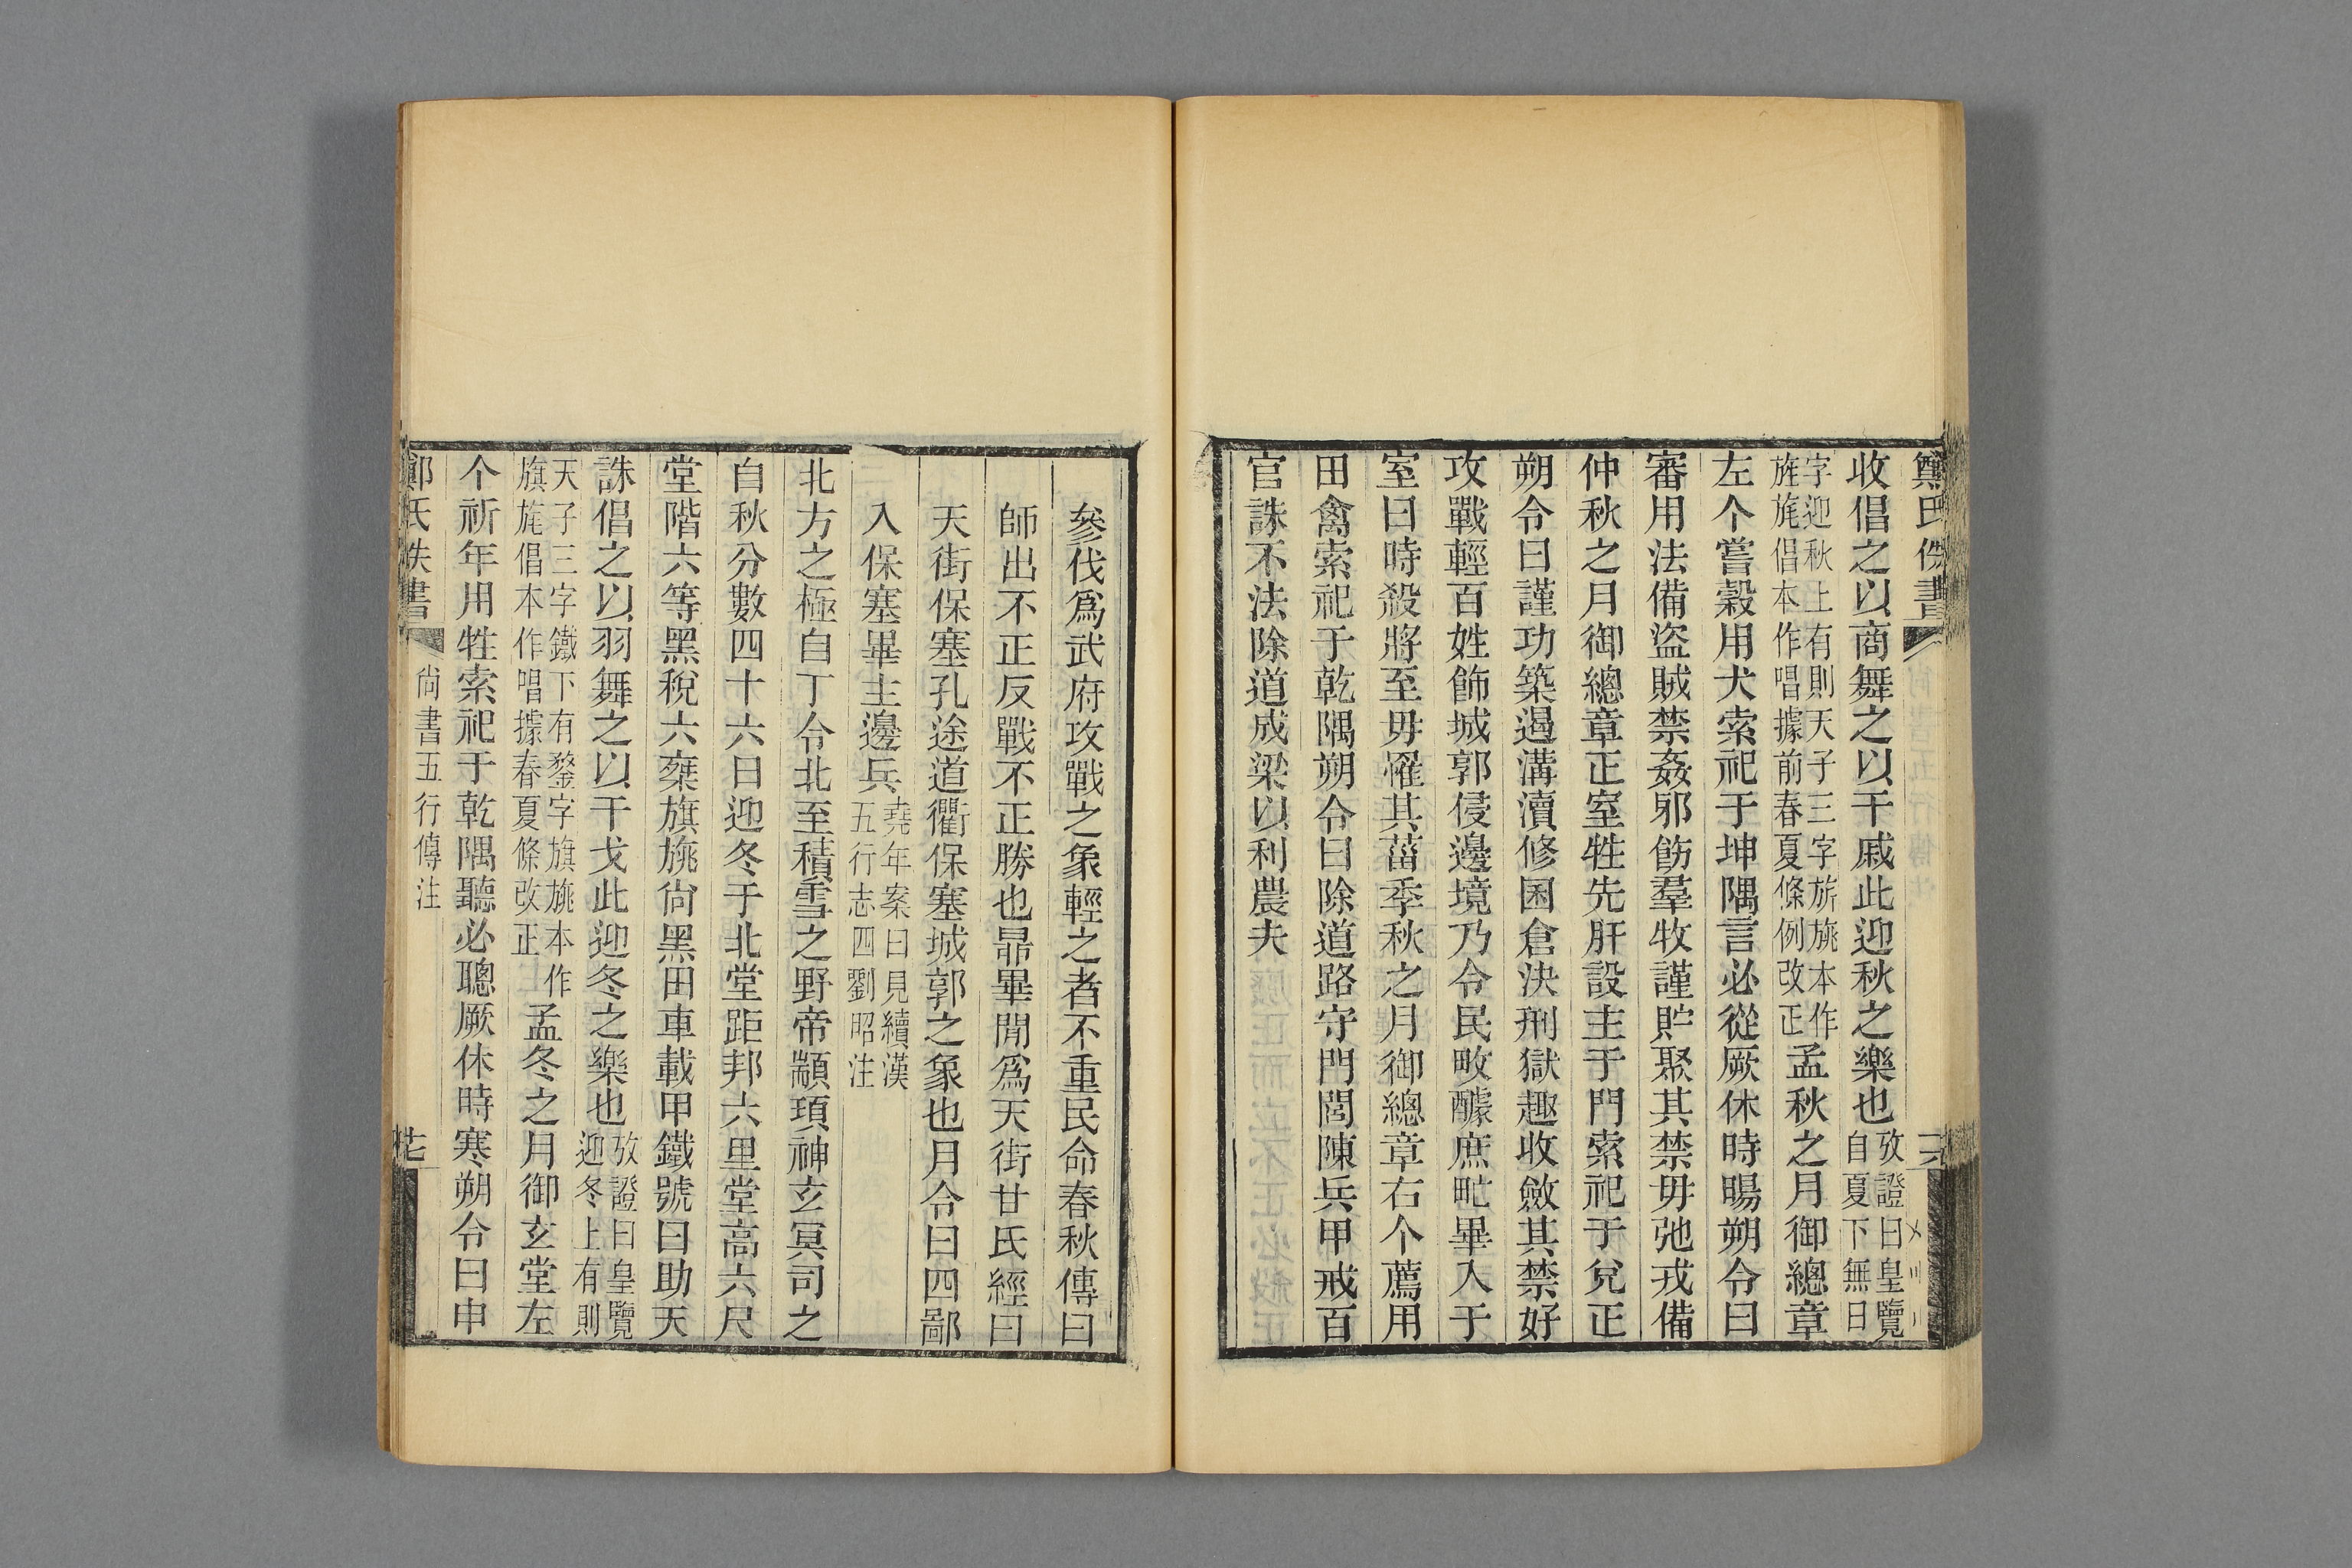 鄭氏佚書
收倡之以商舞之以干戚此迎秋之樂也攷證曰皇覽自夏下無日
字迎秋上有則天子三字旂旐本作旌旄倡本作唱據前春夏條例改正孟秋之月御總章
左个嘗穀用犬索祀于坤隅言必從厥休時暘朔令曰
審用法備盜賊禁姦邪飭羣牧謹貯聚其禁毋弛戎備
仲秋之月御總章正室牲先肝設主于門索祀于兌正
朔令曰謹功築遏溝瀆修囷倉決刑獄趣收斂其禁好
攻戰輕百姓飾城郭侵邊境乃令民畋醵庶甿畢入于
室曰時殺將至毋罹其菑季秋之月御總章右个薦用
田禽索祀于乾隅朔令曰除道路守門閭陳兵甲戒百
官誅不法除道成梁以利農夫
參伐爲武府攻戰之象輕之者不重民命春秋傳曰
師出不正反戰不正勝也昴畢閒爲天街甘氏經曰
天街保塞孔途道衢保塞城郭之象也月令曰四鄙
入保塞畢主邊兵堯年案曰見續漢五行志四劉昭注
北方之極自丁令北至積雪之野帝顓頊神玄冥司之
自秋分數四十六日迎冬于北堂距邦六里堂高六尺
堂階六等黑稅六椉旗旐尙黑田車載甲鐵號曰助天
誅倡之以羽舞之以干戈此迎冬之樂也攷證曰皇覽迎冬上有則
天子三字鐵下有鍪字旗旐本作旗旄倡本作唱據春夏條改正孟冬之月御玄堂左
个祈年用牲索祀于乾隅聽必聰厥休時寒朔令曰申
鄭氏佚書 尙書五行傳注